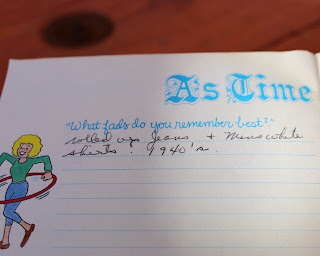 As Time
"What fads do you remember best?"
rolled up jeans + mens white
shirts. 1940's.